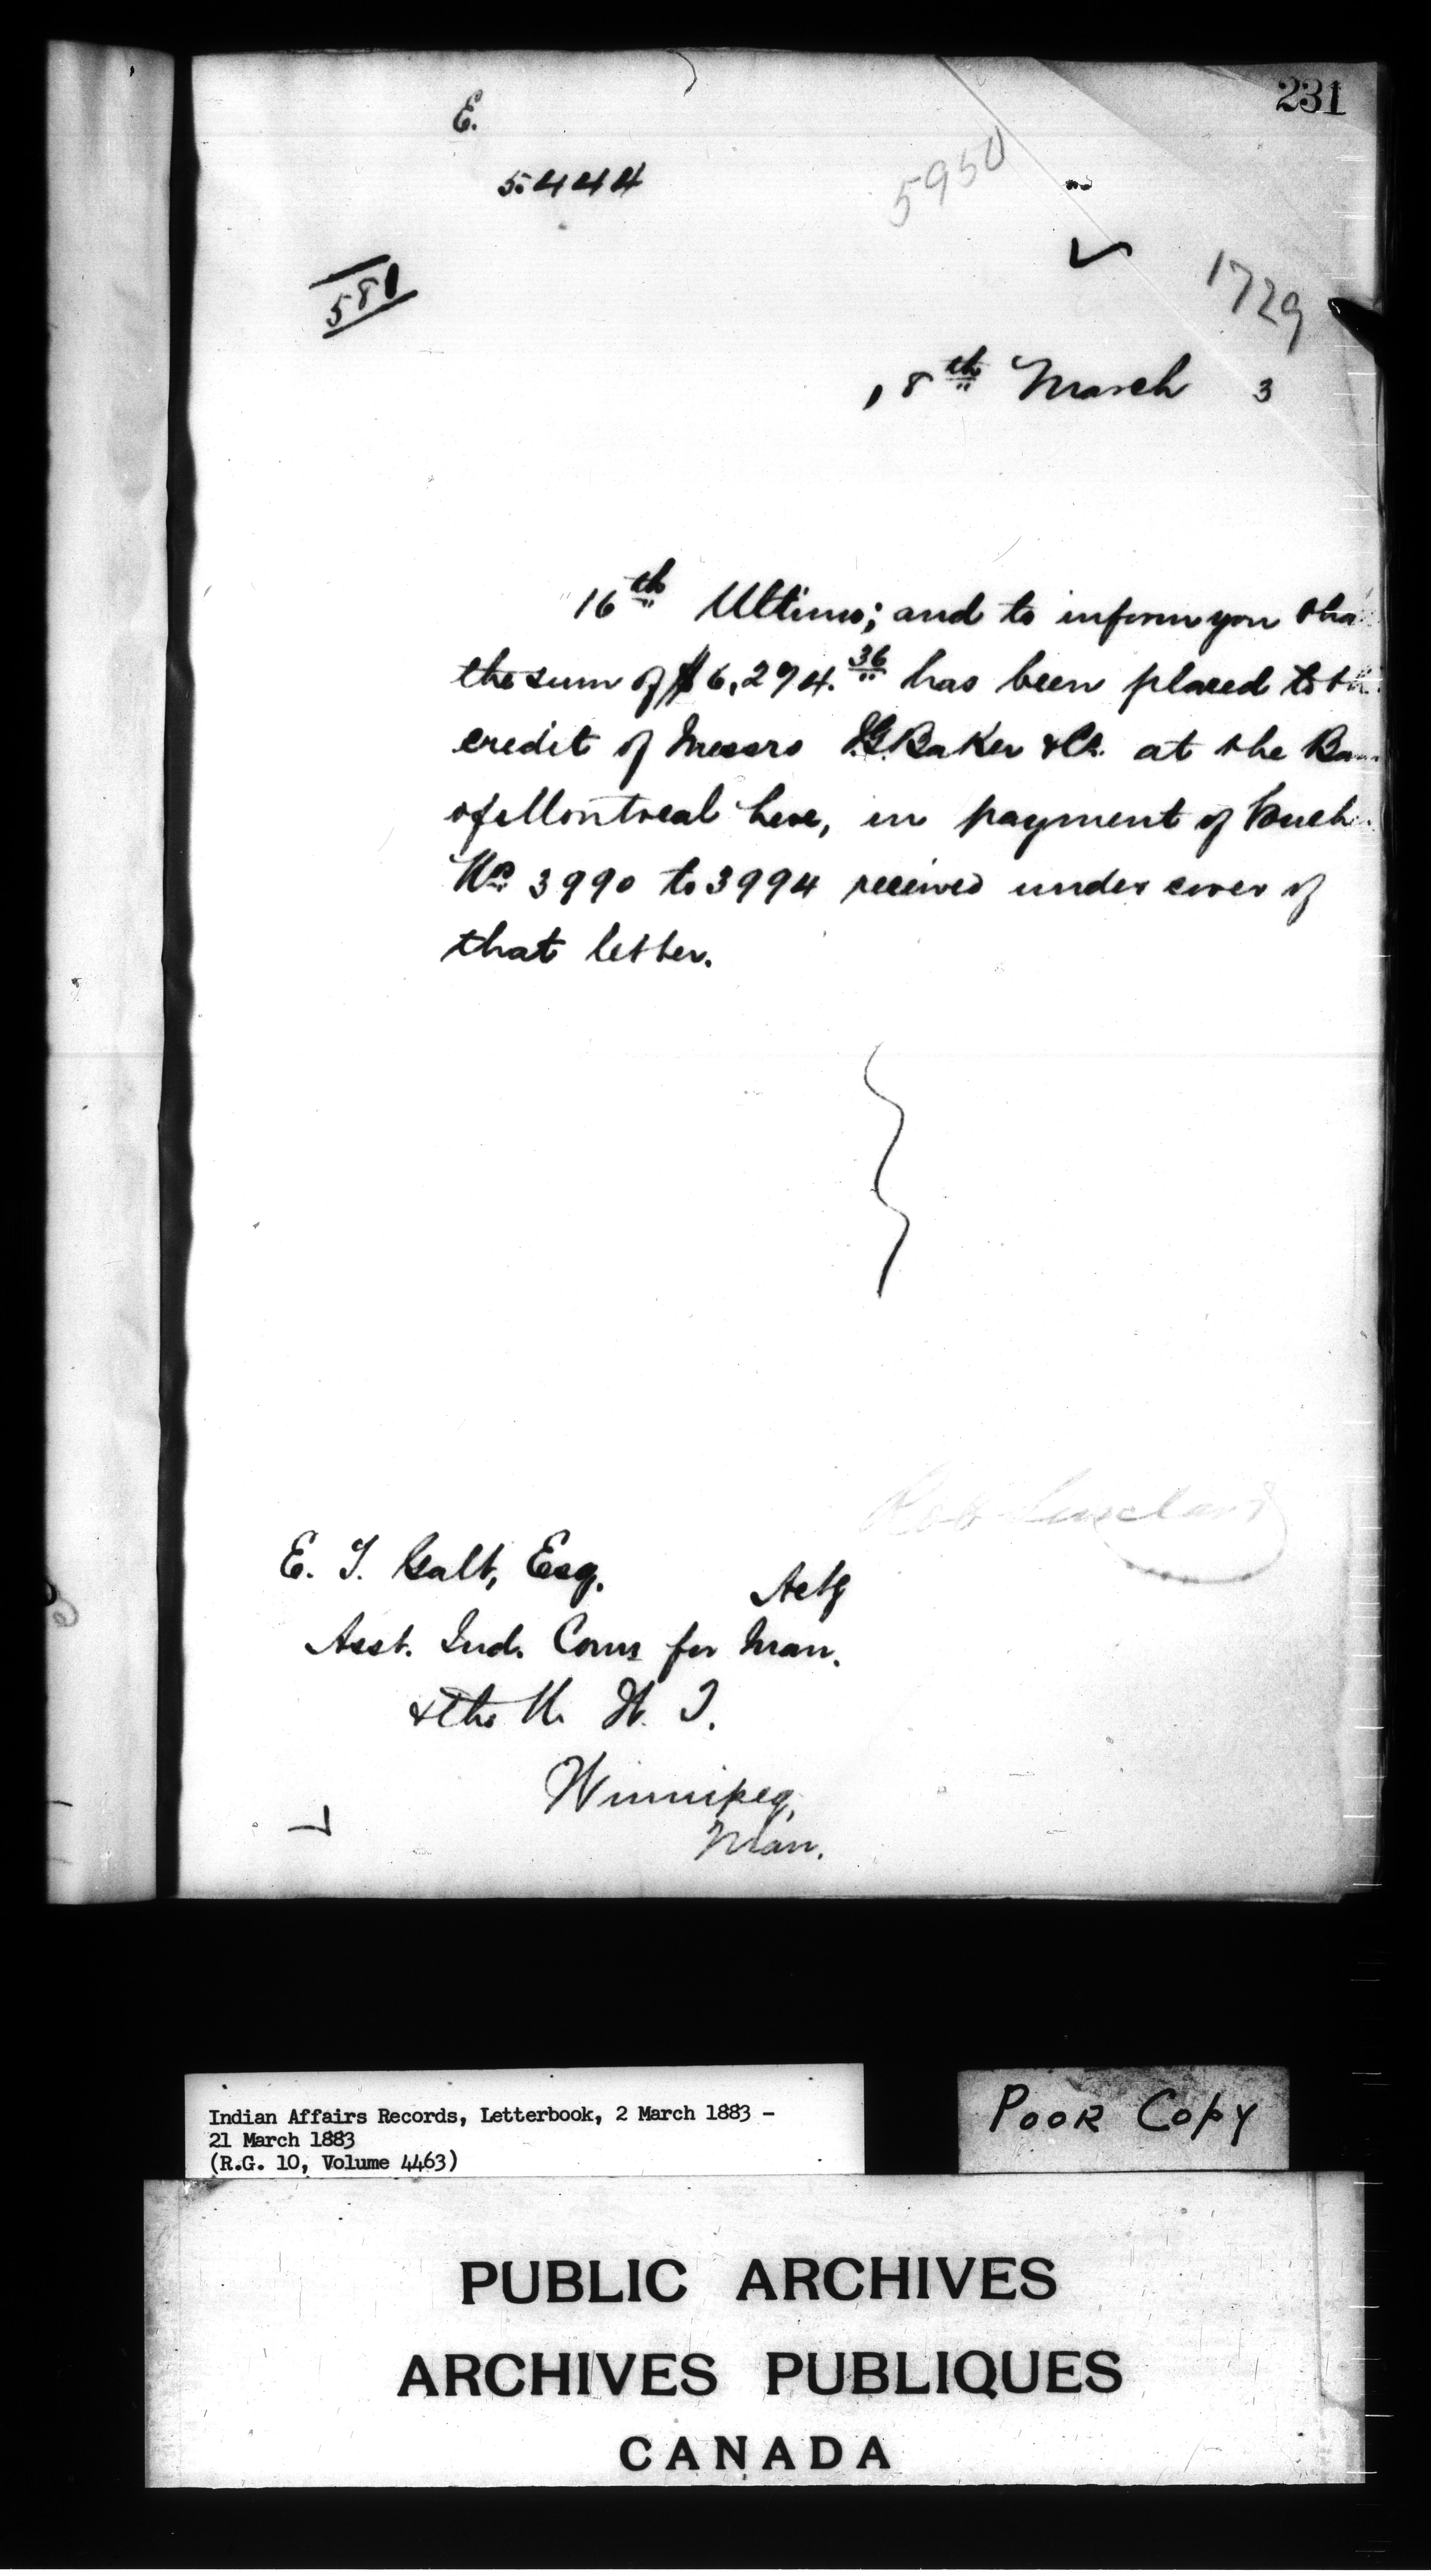 231
E.
5444
5950
1729
581
8th March 3
16th Ultimo; and to inform you tha
the sum of $6,274.36 has been placed to th
credit of Messrs J.G. Baker & Co. at the Ban
of Montreal here, in payment of Vouch
No. 3990 to 3994 received under cover of
that letter.
E. T. Galt, Esq.
Actg
Asst. Ind. Coms for Man.
& the N. W. T.
Winnipeg,
Man.
Indian Affairs Records, Letterbook, 2 March 1883 -
21 March 1883
(R.G. 10, Volume 4463)
POOR COPY
PUBLIC ARCHIVES
ARCHIVES PUBLIQUES
CANADA